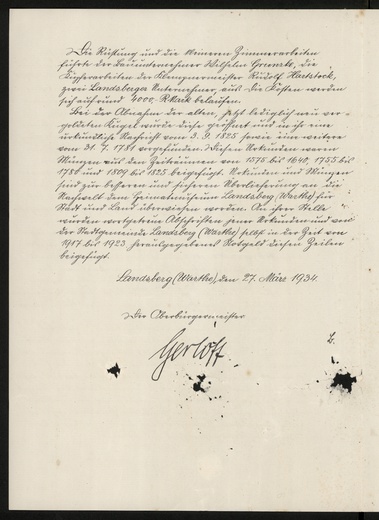 Die Rüstung und die kleineren Zimmerarbeiten
führte der Bauunternehmer Wilhelm die
Kupferarbeiten der Klempnermeister Rudolf Hartstock,
zwei Landsberger Unternehmer, aus. Die Kosten werden
sich auf rund 4000.- RMark belaufen.
Bei der Abnahme der alten, jetzt lediglich neu ver-
goldeten Kugel wurde diese geöffnet und in ihr eine
urkundliche Nachricht vom 3. 9. 1825 sowie eine weitere
vom 31. 7. vorgefunden. Diesen Urkunden waren
Münzen aus den Zeiträumen von 1575 bis 1640, 1755 bis
und 1804 bis 1825 beigefügt. Urkunden und Münzen
sind zur besseren und sicheren Überlieferung an die
Nachwelt dem Heimatmuseum Landsberg (Warthe) für
Stadt und Land überwiesen worden. An ihrer Stelle
wurden wortgetreue Abschriften jener Urkunden und von
der Stadtgemeinde Landsberg (Warthe) selbst in der Zeit von
1917 bis 1923 herausgegebenes Notgeld diesen Zeilen
beigefügt.
Landsberg (Warthe), den 27. März 1934.
Der Oberbürgermeister
Gerloff